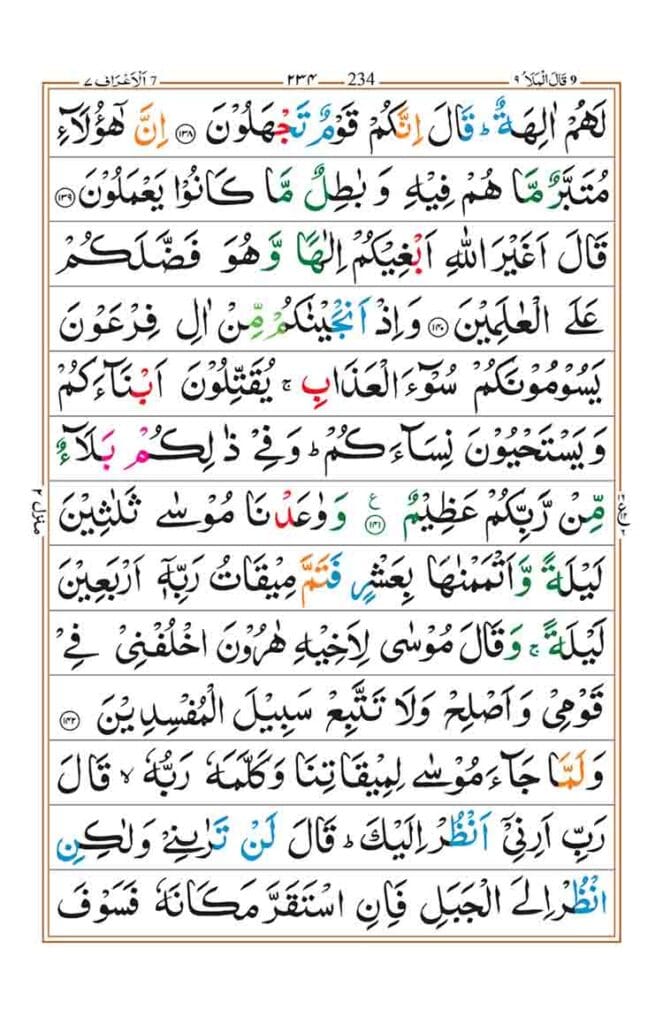 قَالَ الْمَلَاُ ٩ 9 234 ٢٣٤ اَلْاَعْرَاف ٧ 7
لَهُمْ اٰلِهَةٌ ؕ قَالَ اِنَّكُمْ قَوْمٌ تَجْهَلُوْنَ ﴿۱۳۸﴾ اِنَّ هٰۤؤُلَآءِ
مُتَبَّرٌ مَّا هُمْ فِيْهِ وَ بٰطِلٌ مَّا كَانُوْا يَعْمَلُوْنَ ﴿۱۳۹﴾
قَالَ اَغَيْرَ اللّٰهِ اَبْغِيْكُمْ اِلٰهًا وَّ هُوَ فَضَّلَكُمْ
عَلَى الْعٰلَمِيْنَ ﴿۱۴۰﴾ وَ اِذْ اَنْجَيْنٰكُمْ مِّنْ اٰلِ فِرْعَوْنَ
يَسُوْمُوْنَكُمْ سُوْٓءَ الْعَذَابِ ۚ يُقَتِّلُوْنَ اَبْنَآءَكُمْ
وَ يَسْتَحْيُوْنَ نِسَآءَكُمْ ؕ وَ فِيْ ذٰلِكُمْ بَلَآءٌ
مِّنْ رَّبِّكُمْ عَظِيْمٌ ﴿۱۴۱﴾ ع وَ وٰعَدْنَا مُوْسٰى ثَلٰثِيْنَ
لَيْلَةً وَّ اَتْمَمْنٰهَا بِعَشْرٍ فَتَمَّ مِيْقَاتُ رَبِّهٖۤ اَرْبَعِيْنَ
لَيْلَةً ۚ وَ قَالَ مُوْسٰى لِاَخِيْهِ هٰرُوْنَ اخْلُفْنِيْ فِيْ
قَوْمِيْ وَ اَصْلِحْ وَ لَا تَتَّبِعْ سَبِيْلَ الْمُفْسِدِيْنَ ﴿۱۴۲﴾
وَ لَمَّا جَآءَ مُوْسٰى لِمِيْقَاتِنَا وَ كَلَّمَهٗ رَبُّهٗ ۙ قَالَ
رَبِّ اَرِنِيْۤ اَنْظُرْ اِلَيْكَ ؕ قَالَ لَنْ تَرٰىنِيْ وَ لٰكِنِ
انْظُرْ اِلَى الْجَبَلِ فَاِنِ اسْتَقَرَّ مَكَانَهٗ فَسَوْفَ
منزل ٢